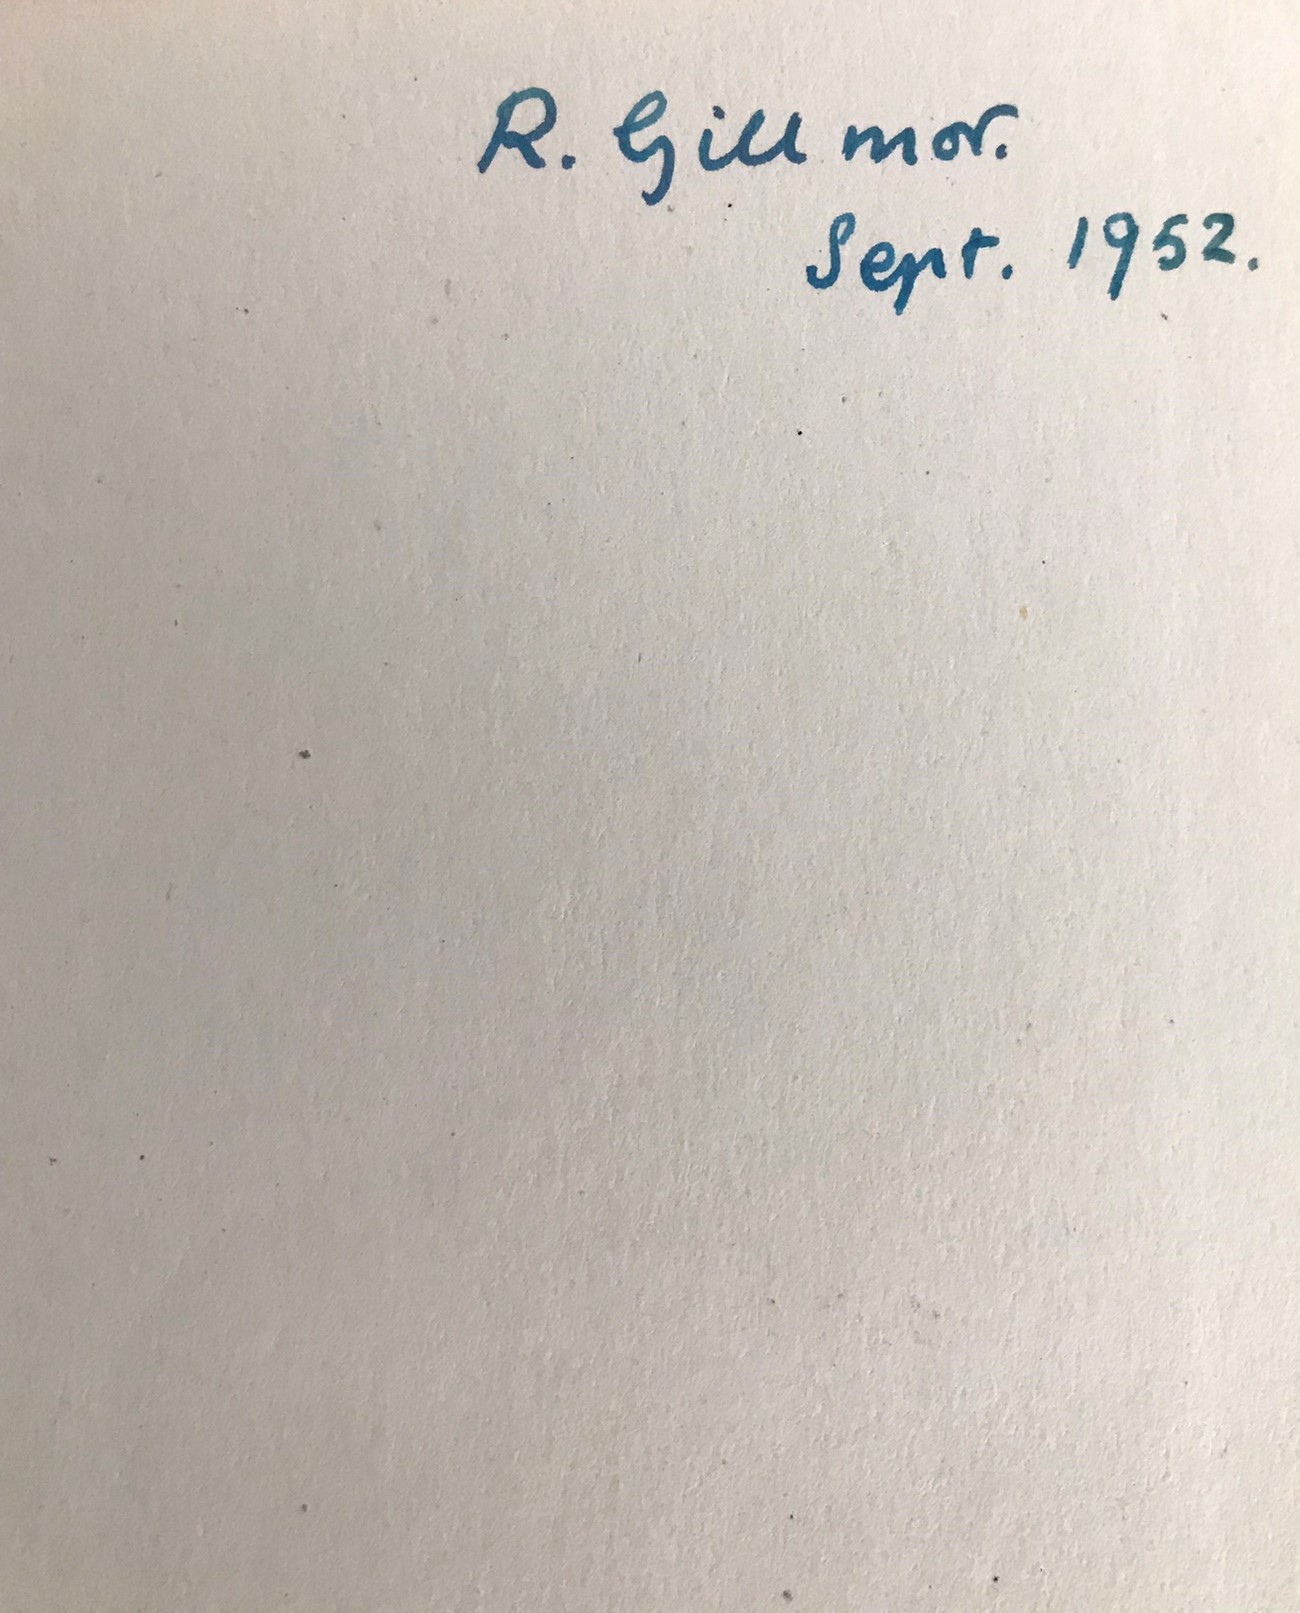 R. Gillmor.
Sept. 1952.